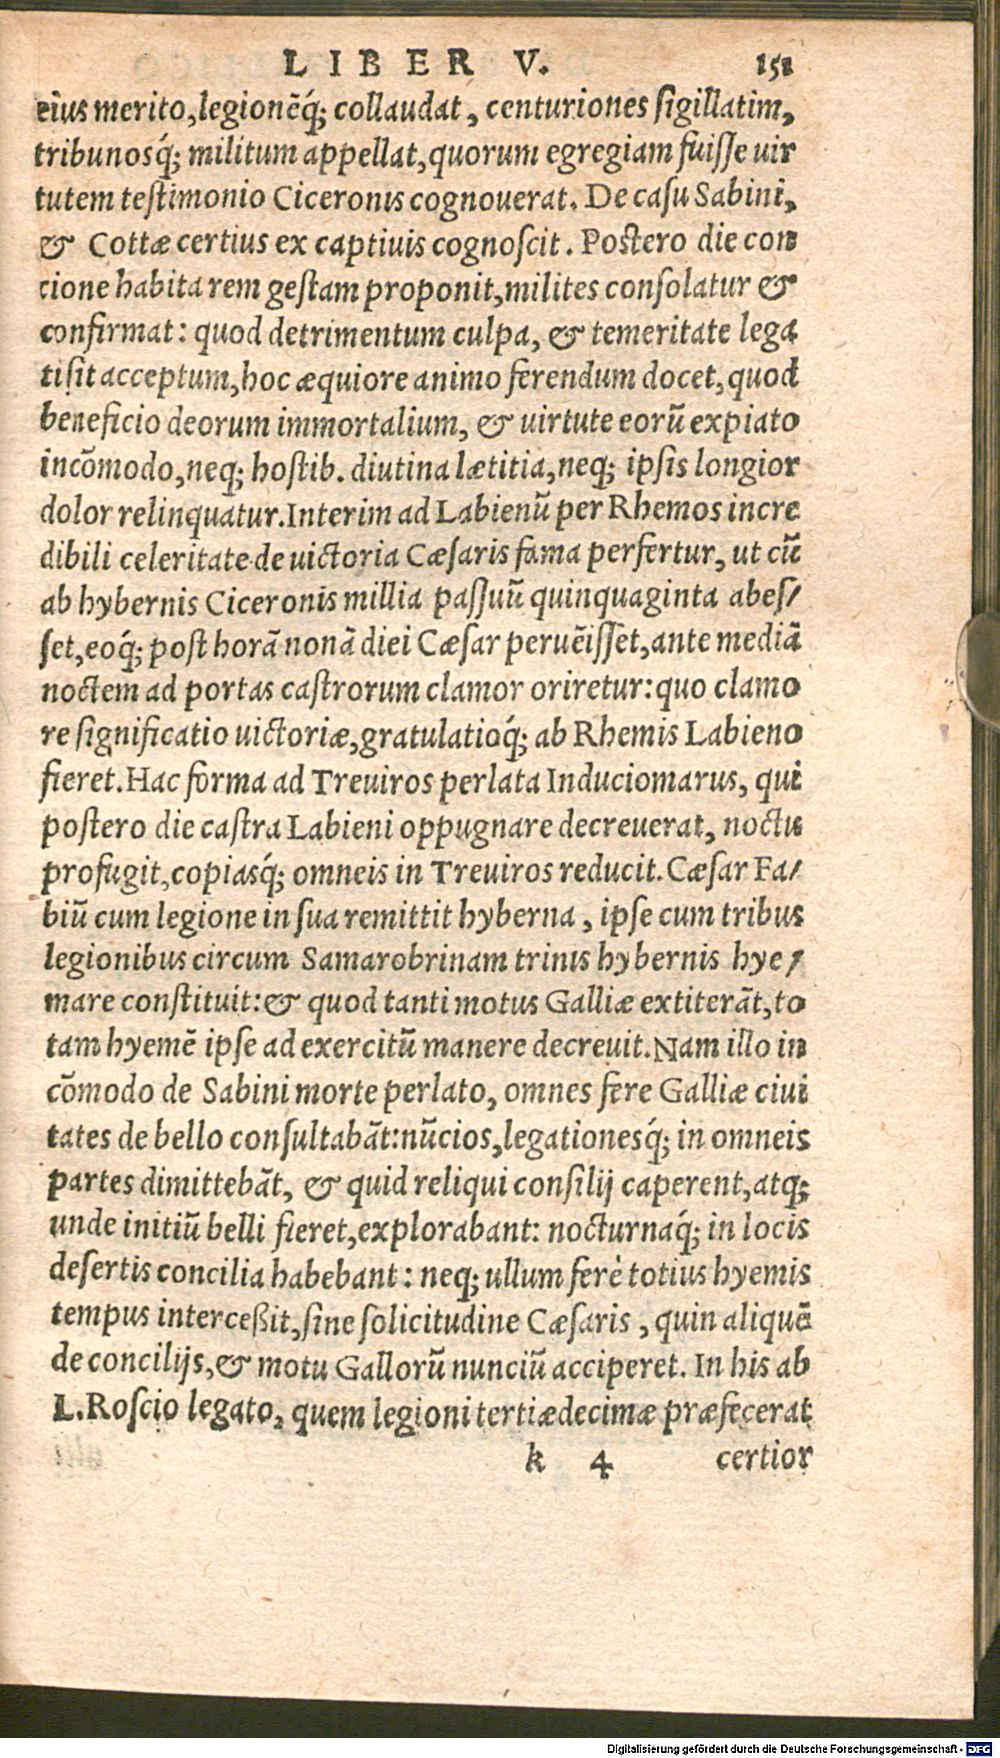 LIBER V. 151
eius merito, legionēq́; collaudat, centuriones sigillatim,
tribunosq́; militum appellat, quorum egregiam fuisse uir
tutem testimonio Ciceronis cognouerat. De casu Sabini,
& Cottæ certius ex captiuis cognoscit. Postero die con
cione habita rem gestam proponit, milites consolatur &
confirmat: quod detrimentum culpa, & temeritate lega
ti sit acceptum, hoc æquiore animo ferendum docet, quod
beneficio deorum immortalium, & uirtute eorū expiato
incōmodo, neq; hostib. diutina lætitia, neq; ipsis longior
dolor relinquatur. Interim ad Labienū per Rhemos incre
dibili celeritate de uictoria Cæsaris fama perfertur, ut cū
ab hybernis Ciceronis millia passuū quinquaginta abes/
set, eoq́; post horā nonā diei Cæsar peruēisset, ante mediā
noctem ad portas castrorum clamor oriretur: quo clamo
re significatio uictoriæ, gratulatioq́; ab Rhemis Labieno
fieret. Hac forma ad Treuiros perlata Induciomarus, qui
postero die castra Labieni oppugnare decreuerat, noctu
profugit, copiasq́; omneis in Treuiros reducit. Cæsar Fa/
biū cum legione in sua remittit hyberna, ipse cum tribus
legionibus circum Samarobrinam trinis hybernis hye/
mare constituit: & quod tanti motus Galliæ extiterāt, to
tam hyemē ipse ad exercitū manere decreuit. Nam illo in
cōmodo de Sabini morte perlato, omnes fere Galliæ ciui
tates de bello consultabāt: nūcios, legationesq́; in omneis
partes dimittebāt, & quid reliqui consilij caperent, atq;
unde initiū belli fieret, explorabant: nocturnaq́; in locis
desertis concilia habebant: neq; ullum ferè totius hyemis
tempus interceßit, sine solicitudine Cæsaris, quin aliquē
de concilijs, & motu Gallorū nunciū acciperet. In his ab
L. Roscio legato, quem legioni tertiædecimæ præfecerat
k 4 certior
Digitalisierung gefördert durch die Deutsche Forschungsgemeinschaft - DFG